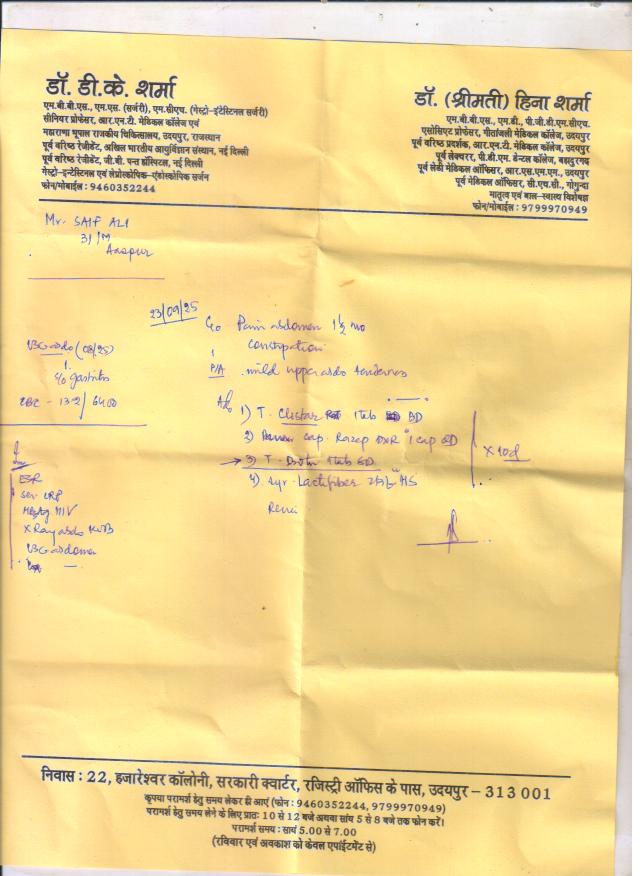 डॉ. डी.के. शर्मा
एम.बी.बी.एस., एम.एस. (सर्जरी), एम.सीएच. (गेस्ट्रो-इंटेस्टिनल सर्जरी)
सीनियर प्रोफेसर, आर.एन.टी. मेडिकल कॉलेज एवं
महाराणा भूपाल राजकीय चिकित्सालय, उदयपुर, राजस्थान
पूर्व वरिष्ठ रेजीडेंट, अखिल भारतीय आयुर्विज्ञान संस्थान, नई दिल्ली
पूर्व वरिष्ठ रेजीडेंट, जी.बी. पन्त हॉस्पिटल, नई दिल्ली
गेस्ट्रो-इन्टेस्टिनल एवं लेप्रोस्कोपिक-एंडोस्कोपिक सर्जन
फोन/मोबाईल : 9460352244
डॉ. (श्रीमती) हिना शर्मा
एम.बी.बी.एस., एम.डी., पी.जी.डी.एम.सीएच.
एसोसिएट प्रोफेसर, गीतांजली मेडिकल कॉलेज, उदयपुर
पूर्व वरिष्ठ प्रदर्शक, आर.एन.टी. मेडिकल कॉलेज, उदयपुर
पूर्व लेक्चरर, पी.डी.एम. डेन्टल कॉलेज, बहादुरगढ़
पूर्व लेडी मेडिकल ऑफिसर, आर.एस.एम.एम., उदयपुर
पूर्व मेडिकल ऑफिसर, सी.एच.सी., गोगुन्दा
मातृत्व एवं बाल-स्वास्थ्य विशेषज्ञ
फोन/मोबाईल : 9799970949
Mr. SAIF ALI
31/M
Aaspur
23/09/25
C/o Pain abdomen 1½ mo
constipation
P/A mild upper abdo tenderness
USG abdo (08/25)
s/o gastritis
CBC - 13.2/6400
Adv
1) T. 1 tab BD
2) cap. Razap DXR 1 cap OD
3) T. 1 tab BD
4) Syr. Lactifiber HS
X 10d
ESR
Ser. CRP
HBsAg HIV
X Ray abdo KUB
USG abdomen
निवास : 22, हजारेश्वर कॉलोनी, सरकारी क्वार्टर, रजिस्ट्री ऑफिस के पास, उदयपुर – 313 001
कृपया परामर्श हेतु समय लेकर ही आएं (फोन : 9460352244, 9799970949)
परामर्श हेतु समय लेने के लिए प्रातः 10 से 12 बजे अथवा सांय 5 से 8 बजे तक फोन करें।
परामर्श समय : सायं 5.00 से 7.00
(रविवार एवं अवकाश को केवल एपांईटमेंट से)